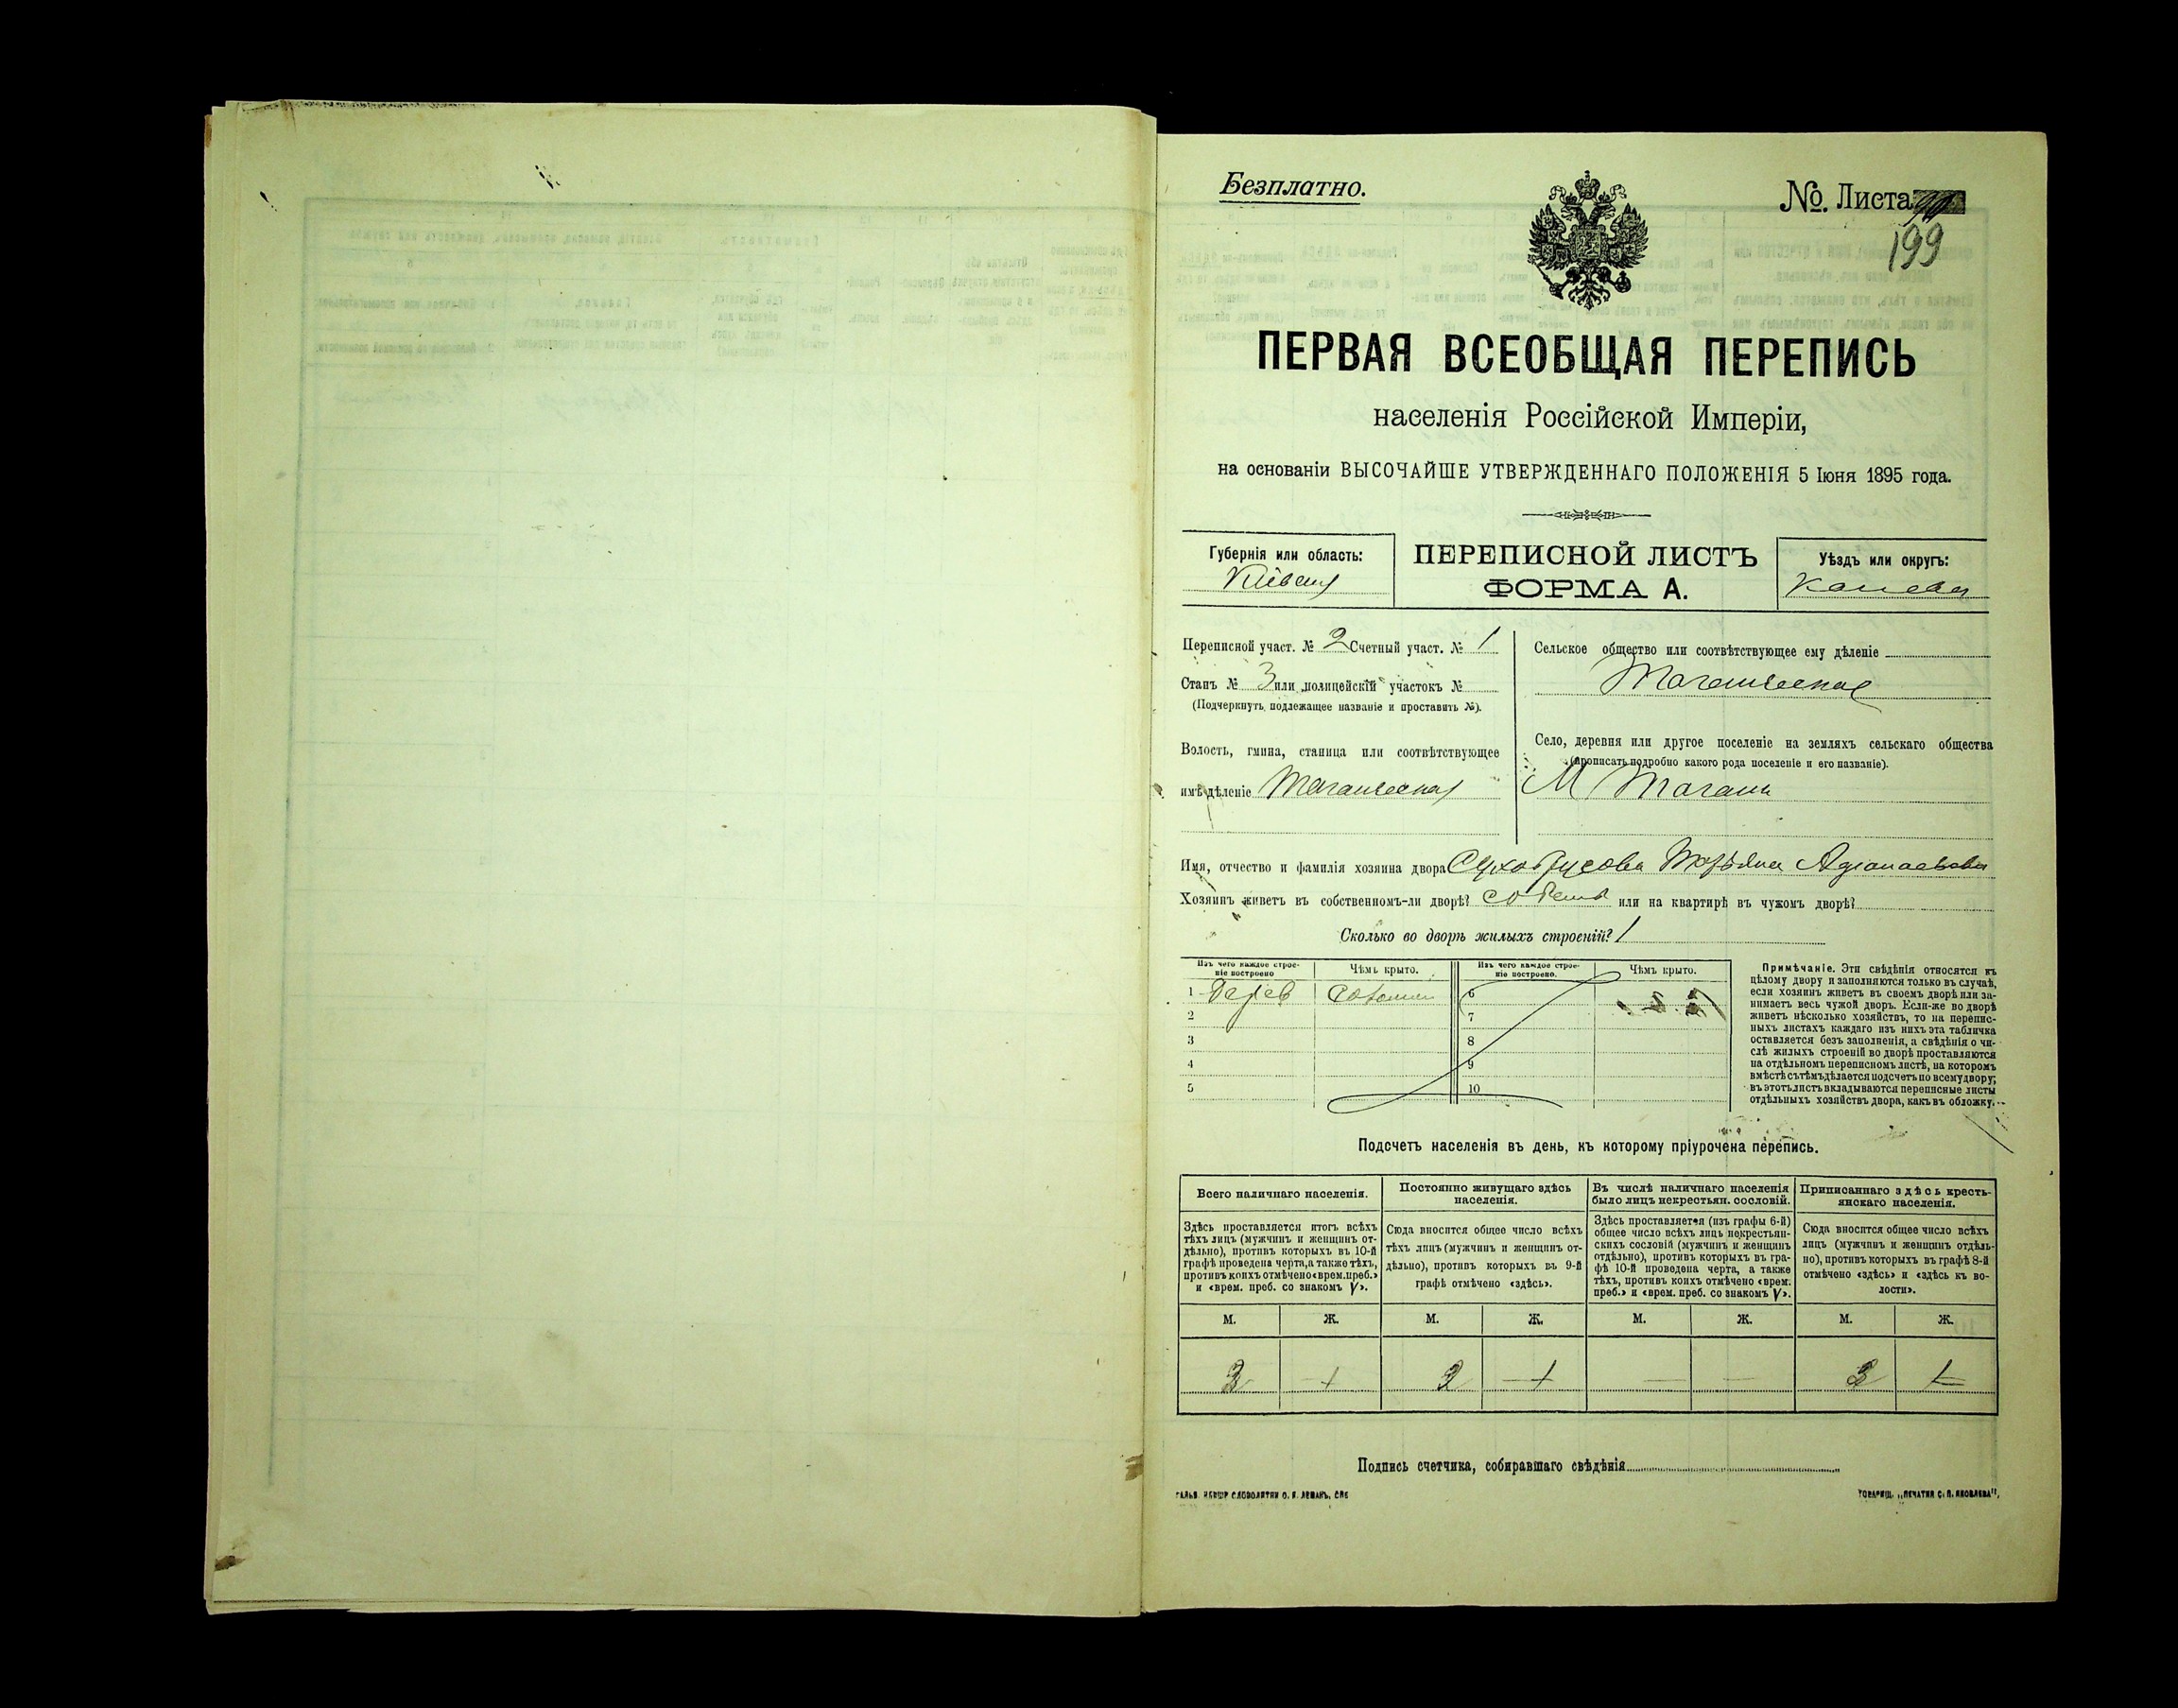 Безплатно.
№. Листа
199
ПЕРВАЯ ВСЕОБЩАЯ ПЕРЕПИСЬ
населенія Россійской Имперіи,
на основаніи ВЫСОЧАЙШЕ УТВЕРЖДЕННАГО ПОЛОЖЕНІЯ 5 Іюня 1895 года.
Губернія или область:
Кіевская
ПЕРЕПИСНОЙ ЛИСТЪ
ФОРМА А.
Уѣздъ или округъ:
Переписной участ. № 2 Счетный участ. № 1
Станъ № 3 или полицейскій участокъ №
(Подчеркнуть подлежащее названіе и проставить №).
Волость, гмина, станица или соотвѣтствующее
имъ дѣленіе
Сельское общество или соотвѣтствующее ему дѣленіе
Село, деревня или другое поселеніе на земляхъ сельскаго общества
(прописать подробно какого рода поселеніе и его названіе).
М
Имя, отчество и фамилія хозяина двора
Хозяинъ живетъ въ собственномъ-ли дворѣ? или на квартирѣ въ чужомъ дворѣ?
Сколько во дворѣ жилыхъ строеній? 1
Изъ чего каждое строе-
ніе построено
Чѣмъ крыто.
Изъ чего каждое строе-
ніе построено.
Чѣмъ крыто.
1 Дерев 6
2 7
3 8
4 9
5 10
Примѣчаніе. Эти свѣдѣнія относятся къ
цѣлому двору и заполняются только въ случаѣ,
если хозяинъ живетъ въ своемъ дворѣ или за-
нимаетъ весь чужой дворъ. Если-же во дворѣ
живетъ нѣсколько хозяйствъ, то на перепис-
ныхъ листахъ каждаго изъ нихъ эта табличка
оставляется безъ заполненія, а свѣдѣнія о чи-
слѣ жилыхъ строеній во дворѣ проставляются
на отдѣльномъ переписномъ листѣ, на которомъ
вмѣстѣ съ тѣмъ дѣлается подсчетъ по всему двору;
въ этотъ листъ вкладываются переписные листы
отдѣльныхъ хозяйствъ двора, какъ въ обложку.
Подсчетъ населенія въ день, къ которому пріурочена перепись.
Всего наличнаго населенія.
Здѣсь проставляется итогъ всѣхъ
тѣхъ лицъ (мужчинъ и женщинъ от-
дѣльно), противъ которыхъ въ 10-й
графѣ проведена черта, а также тѣхъ,
противъ коихъ отмѣчено «врем. преб.»
и «врем. преб. со знакомъ V».
Постоянно живущаго здѣсь
населенія.
Сюда вносится общее число всѣхъ
тѣхъ лицъ (мужчинъ и женщинъ от-
дѣльно), противъ которыхъ въ 9-й
графѣ отмѣчено «здѣсь».
Въ числѣ наличнаго населенія
было лицъ некрестьян. сословій.
Здѣсь проставляется (изъ графы 6-й)
общее число всѣхъ лицъ некрестьян-
скихъ сословій (мужчинъ и женщинъ
отдѣльно), противъ которыхъ въ гра-
фѣ 10-й проведена черта, а также
тѣхъ, противъ коихъ отмѣчено «врем.
преб.» и «врем. преб. со знакомъ V».
Приписаннаго здѣсь кресть-
янскаго населенія.
Сюда вносится общее число всѣхъ
лицъ (мужчинъ и женщинъ отдѣль-
но), противъ которыхъ въ графѣ 8-й
отмѣчено «здѣсь» и «здѣсь къ во-
лости».
М. Ж. М. Ж. М. Ж. М. Ж.
Подпись счетчика, собиравшаго свѣдѣнія